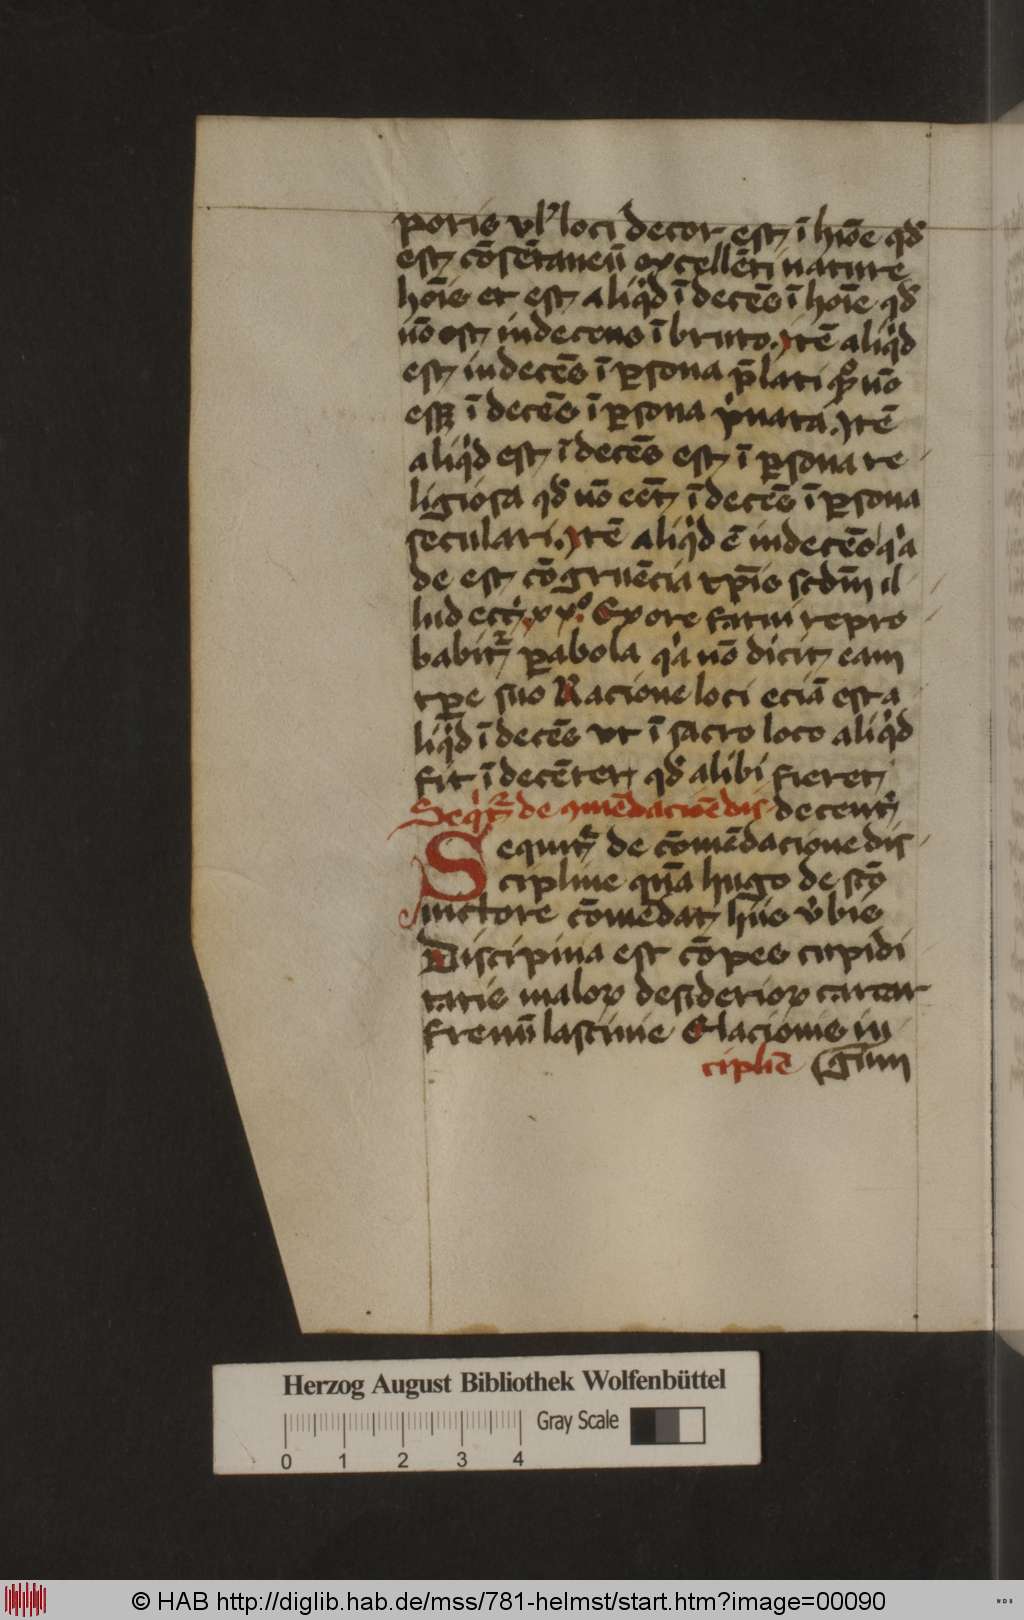 poris vl' loci decor est ī hōie qd'
est cōsētaneū excellēti nature
hōis et est aliqd ī decēs ī hoīe qd'
nō est indecens ī bruto. Itē aliqd
est indecēs ī psona plati qd nō
esset ī decēs ī psona pͥuata. Itē
aliqd est ī decēs est ī psona re
ligiosa qd' nō eēt ī decēs ī psona
seculari. Itē aliqd ē indecēs qͥa
de est cōgruēcia tpīs scdm il
lud eccͥ xxº Ex ore fatui repro
babit' pabola qͥa nō dicit eam
tpe suo Racione loci eciā est a
liqd ī decēs vt ī sacro loco aliqd
fit ī decēter qd' alibi fieret
Seqͥt' de 9mēdaciōe dis decent'
Sequit' de cōmēdacione dis
cipline quā hugo de scō
uictore cōmēdat hiis v'bis
Discipina est cōpes cupidi
tatis maloꝝ desiderioꝝ carcar
frenū lasciuie Elacionis iu
ciplīe (gum
Herzog August Bibliothek Wolfenbüttel
Gray Scale
0 1 2 3 4
© HAB http://diglib.hab.de/mss/781-helmst/start.htm?image=00090